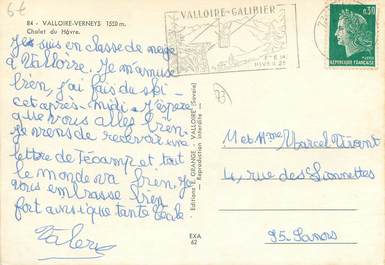 6€
84 - VALLOIRE-VERNEYS 1550 m.
Chalet du Hâvre
Je suis en classe de neige
à Valloire. Je m'amuse
bien, j'ai fais du ski
cet après-midi. J'espère
que vous allez bien.
Je viens de recevoir une
lettre de Fécamp et tout
le monde va bien. Je
vous embrasse bien
fort ainsi que tante
Valery
VALLOIRE-GALIBIER
HIVER
0,30
REPUBLIQUE FRANÇAISE
73
Editions E. GRANGE - VALLOIRE (Savoie)
— Reproduction interdite —
EXA
62
M et Mme Marcel
4, rue des
95-